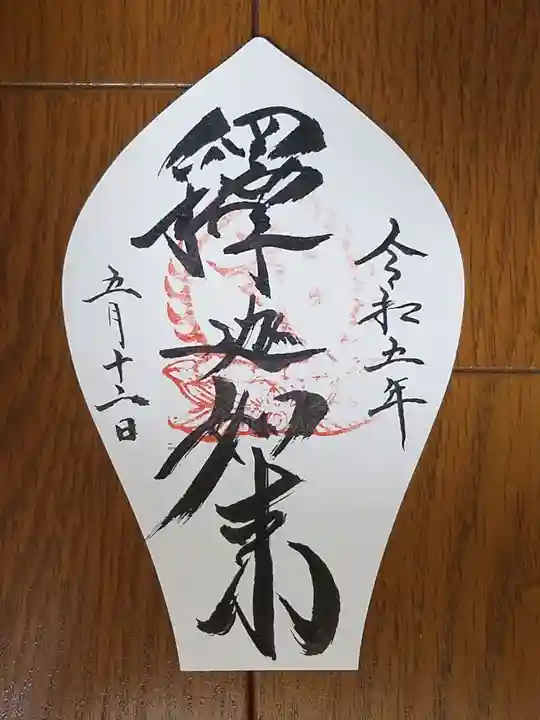 令和五年
釋迦如来
五月十三日